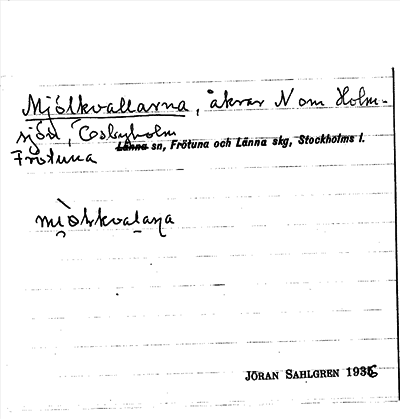 Mjölkvallarna, åkrar N om Holm-
sjön, Cosbyholm
Frötuna
Länna sn, Frötuna och Länna skg, Stockholms l.
mjòlkvalaɳa
JÖRAN SAHLGREN 1936